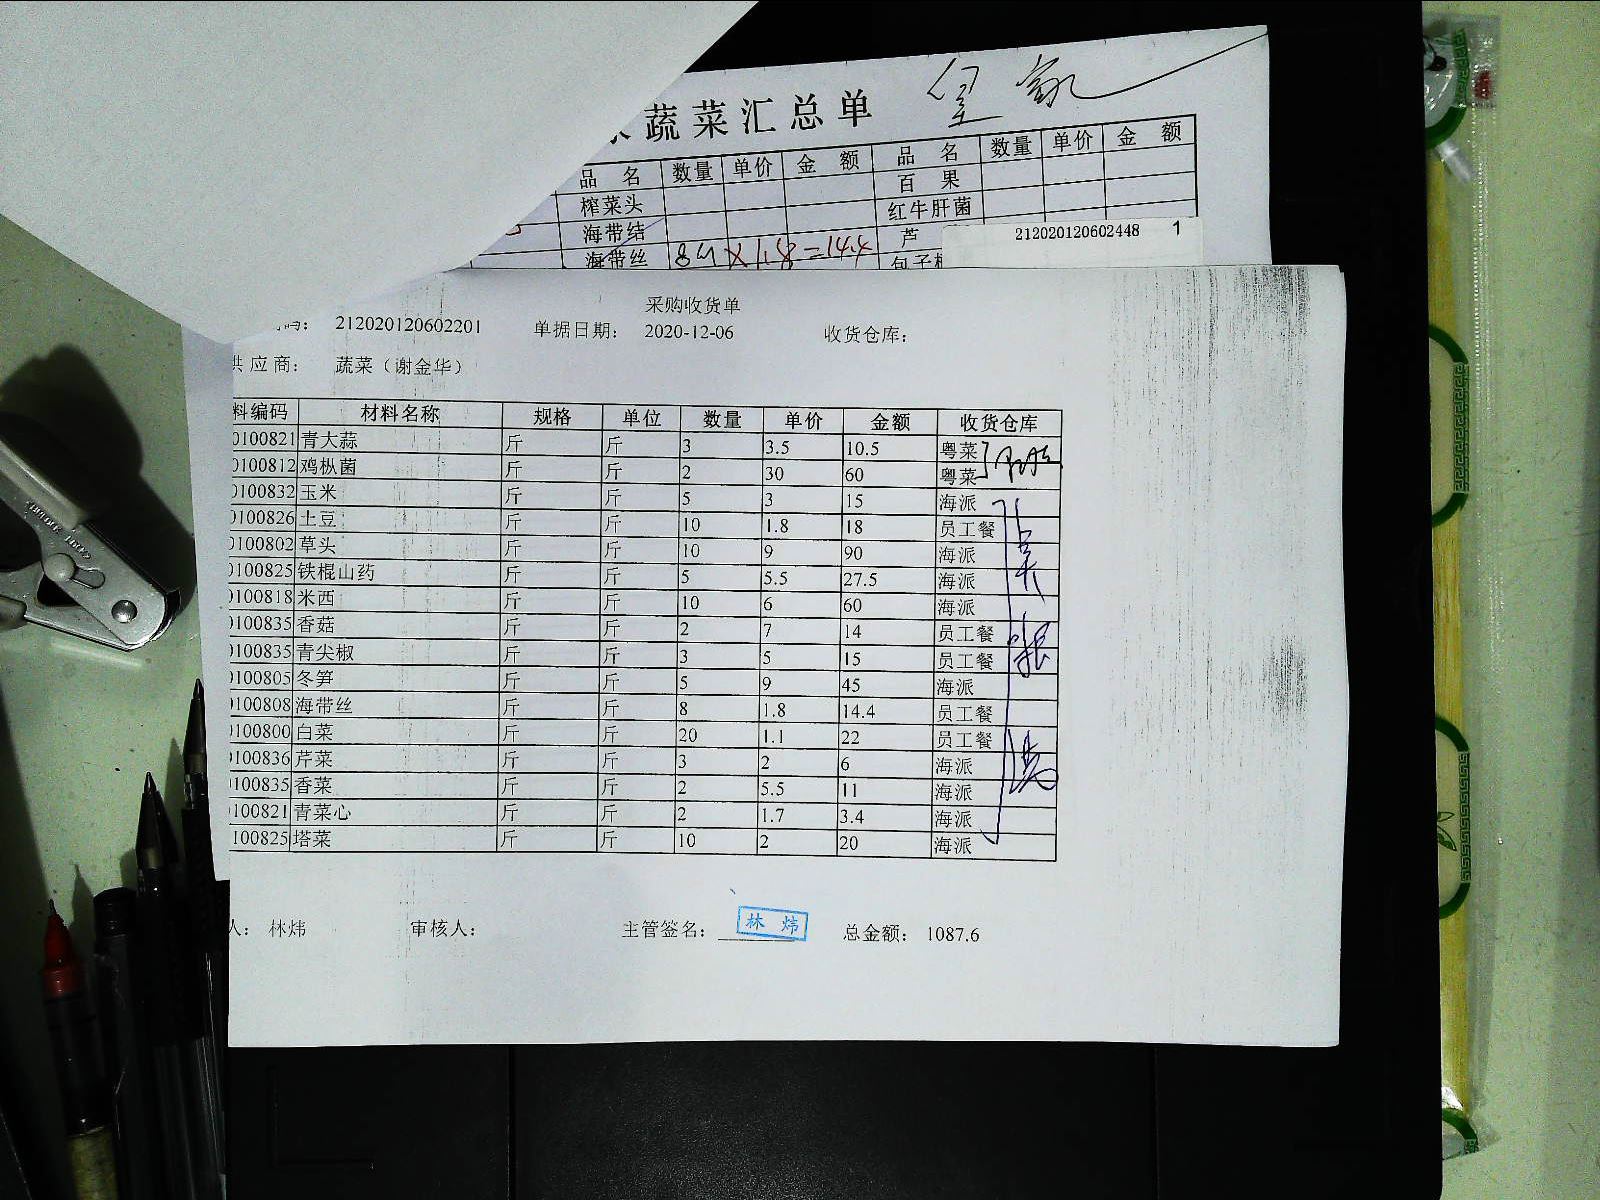 蔬菜汇总单
品 名 数量 单价 金 额 品 名 数量 单价 金 额
榨菜头 百 果
海带结 红牛肝菌
海带丝 8斤×1.8=14.4 芦
212020120602448 1
采购收货单
码： 212020120602201 单据日期： 2020-12-06 收货仓库：
供应商： 蔬菜（谢金华）
料编码 材料名称 规格 单位 数量 单价 金额 收货仓库
0100821 青大蒜 斤 斤 3 3.5 10.5 粤菜
0100812 鸡枞菌 斤 斤 2 30 60 粤菜
0100832 玉米 斤 斤 5 3 15 海派
0100826 土豆 斤 斤 10 1.8 18 员工餐
0100802 草头 斤 斤 10 9 90 海派
0100825 铁棍山药 斤 斤 5 5.5 27.5 海派
0100818 米西 斤 斤 10 6 60 海派
0100835 香菇 斤 斤 2 7 14 员工餐
0100835 青尖椒 斤 斤 3 5 15 员工餐
0100805 冬笋 斤 斤 5 9 45 海派
0100808 海带丝 斤 斤 8 1.8 14.4 员工餐
0100800 白菜 斤 斤 20 1.1 22 员工餐
0100836 芹菜 斤 斤 3 2 6 海派
0100835 香菜 斤 斤 2 5.5 11 海派
0100821 青菜心 斤 斤 2 1.7 3.4 海派
100825 塔菜 斤 斤 10 2 20 海派
人： 林炜 审核人： 主管签名： 林 炜 总金额： 1087.6